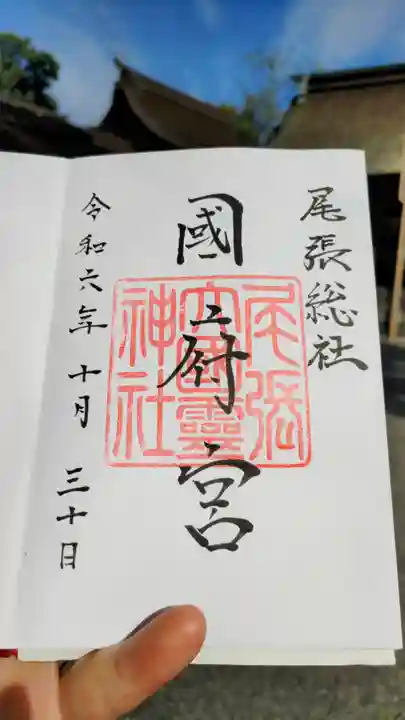 尾張総社
國府宮
令和六年 十月 三十日
尾張
大國霊
神社